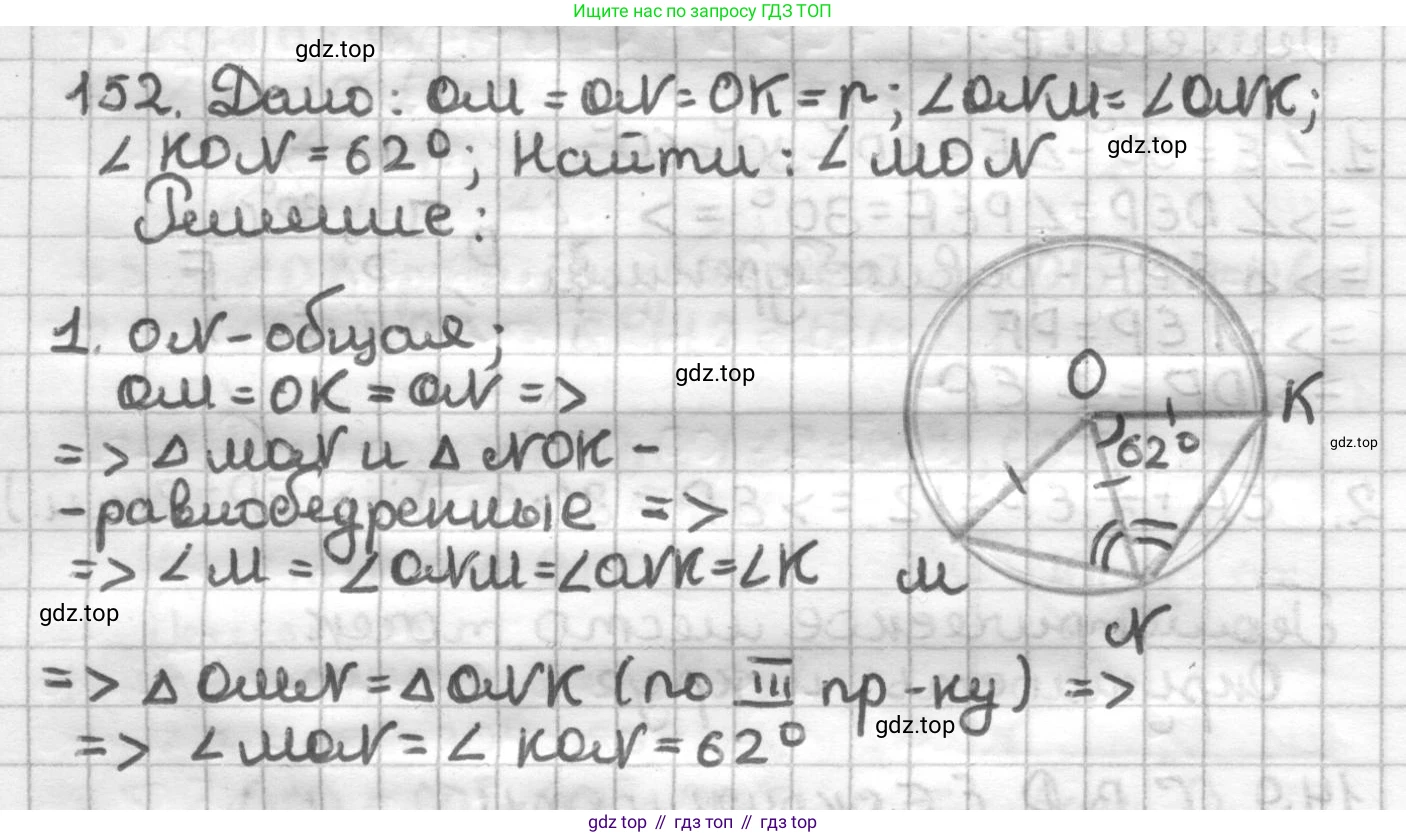 Ищите нас по запросу ГДЗ ТОП
gdz.top
152. Дано: OM = ON = OK = r; ∠ONM = ∠ONK;
∠KON = 62°; Найти: ∠MON
gdz.top
Решение:
1. ON - общая;
OM = OK = ON =>
gdz.top
=> Δ MON и Δ NOK -
- равнобедренные =>
=> ∠M = ∠ONM = ∠ONK = ∠K
gdz.top
O
K
62°
gdz.top
M
N
=> Δ OMN = Δ ONK (по III пр-ку) =>
gdz.top
=> ∠MON = ∠KON = 62°
gdz top // гдз топ // gdz top